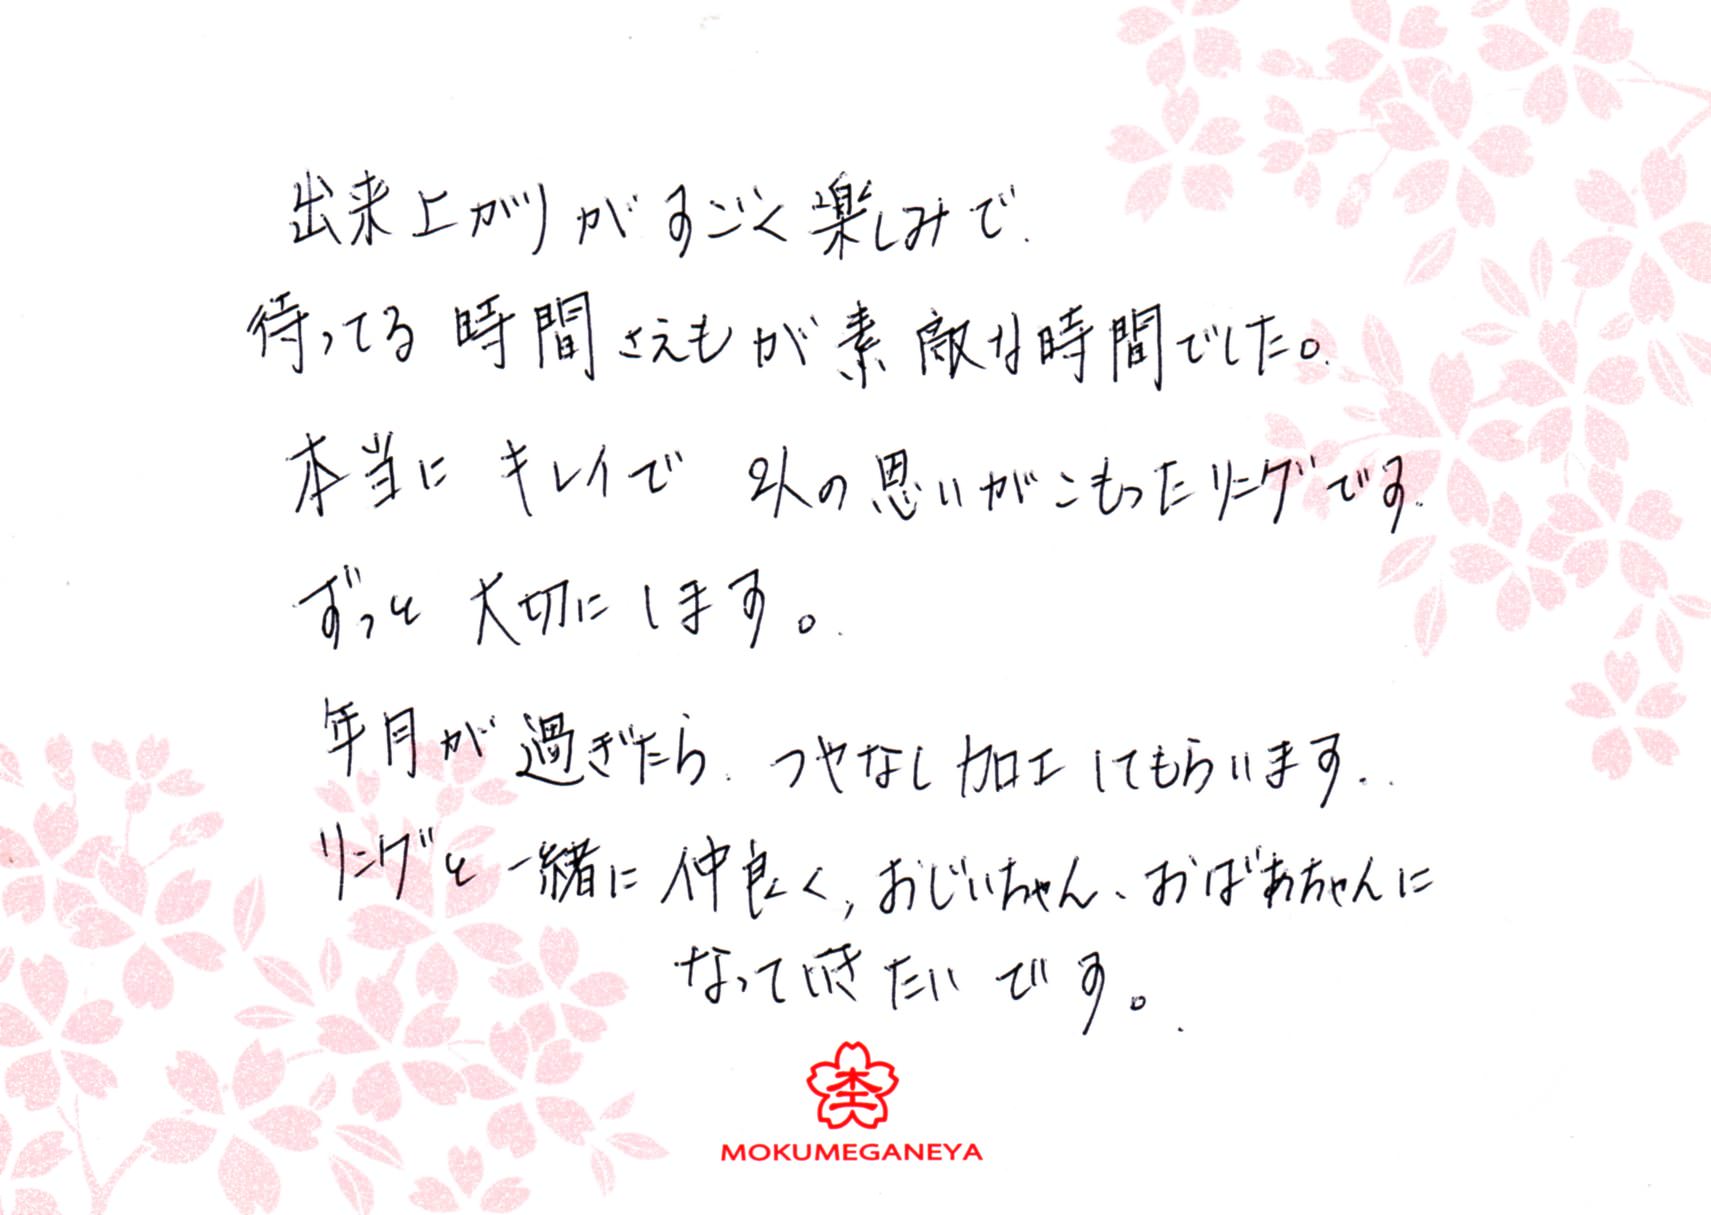 出来上がりがすごく楽しみで
待ってる時間さえもが素敵な時間でした。
本当にキレイで 2人の思いがこもったリングです.
ずっと大切にします。
年月が過ぎたら. つやなし加工してもらいます..
リングと一緒に仲良く, おじいちゃん、おばあちゃんに
なっていきたいです。
MOKUMEGANEYA